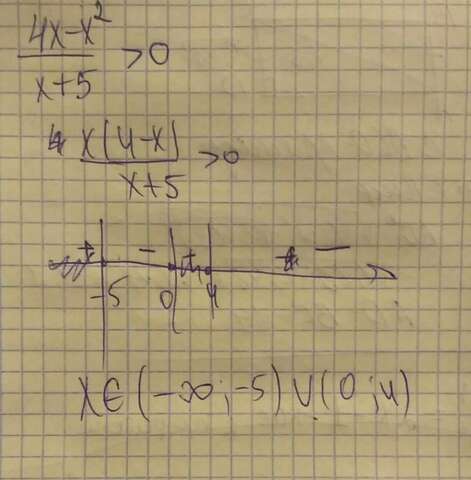 4x-x²/x+5 >0
x(4-x)/x+5 >0
+ - + -
-5 0 4
x∈(-∞;-5)∪(0;4)